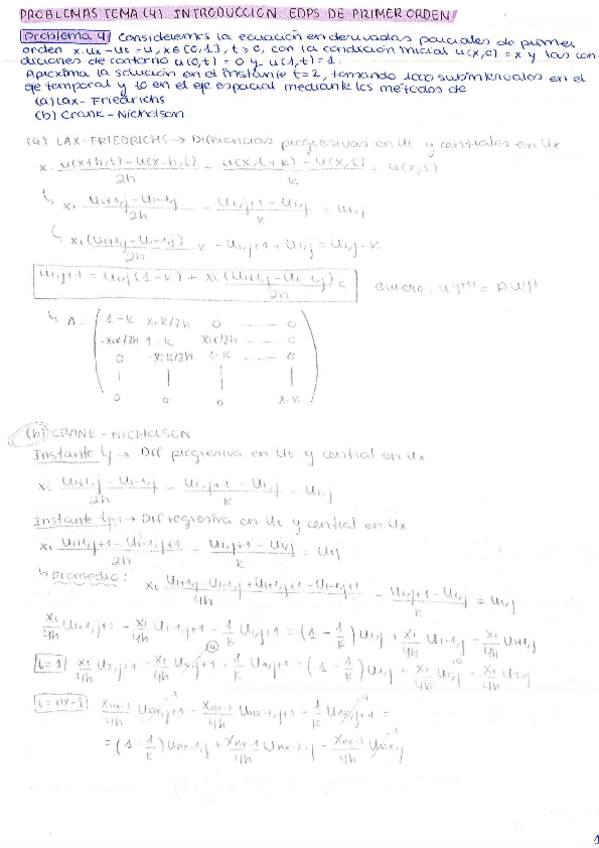 PROBLEMAS TEMA (4) INTRODUCCIÓN EDPS DE PRIMER ORDEN
Problema 4 Consideremos la ecuación en derivadas parciales de primer
orden x·ux - ut = u, x∈[0,1], t>0, con la condición inicial u(x,0) = x y las con
diciones de contorno u(0,t) = 0 y u(1,t) = 1.
Aproxima la solución en el instante t=2, tomando 1000 subintervalos en el
eje temporal y 10 en el eje espacial mediante los métodos de
(a) Lax-Friedrichs
(b) Crank-Nicholson
(a) LAX-FRIEDRICHS → Diferencias progresivas en Ut y centrales en Ux
x · u(x+h,t) - u(x-h,t) / 2h - u(x,t+k) - u(x,t) / k = u(x,t)
↳ xi ui+1,j - ui-1,j / 2h - ui,j+1 - ui,j / k = ui,j
↳ xi (ui+1,j - ui-1,j) / 2h · k - ui,j+1 + ui,j = ui,j · k
ui,j+1 = ui,j (1-k) + xi (ui+1,j - ui-1,j) / 2h k
↳ A = ( 1-k xik/2h 0 ---- 0
-xik/2h 1-k xik/2h --- 0
0 -xik/2h 1-k --- 0
| | |
0 0 0 1-k )
(b) CRANK-NICHOLSON
Instante tj → Dif progresiva en Ut y central en Ux
xi ui+1,j - ui-1,j / 2h - ui,j+1 - ui,j / k = ui,j
Instante tj+1 → Dif regresiva en Ut y central en Ux
xi ui+1,j+1 - ui-1,j+1 / 2h - ui,j+1 - ui,j / k = uij
↳ promedio: xi ui+1,j - ui-1,j + ui+1,j+1 - ui-1,j+1 / 4h - ui,j+1 - ui,j / k = ui,j
xi/4h ui+1,j+1 - xi/4h ui-1,j+1 - 1/k ui,j+1 = (1 - 1/k) ui,j + xi/4h ui-1,j - xi/4h ui+1,j
i=1 x1/4h u2,j+1 - x1/4h u0,j+1 - 1/k u1,j+1 = (1 - 1/k) u1,j + x1/4h u0,j - x1/4h u2,j
i=nx-1 xnx-1/4h unx,j+1 - xnx-1/4h unx-2,j+1 - 1/k unx-1,j+1 =
= (1 - 1/k) unx-1,j + xnx-1/4h unx-2,j - xnx-1/4h unx,j
1